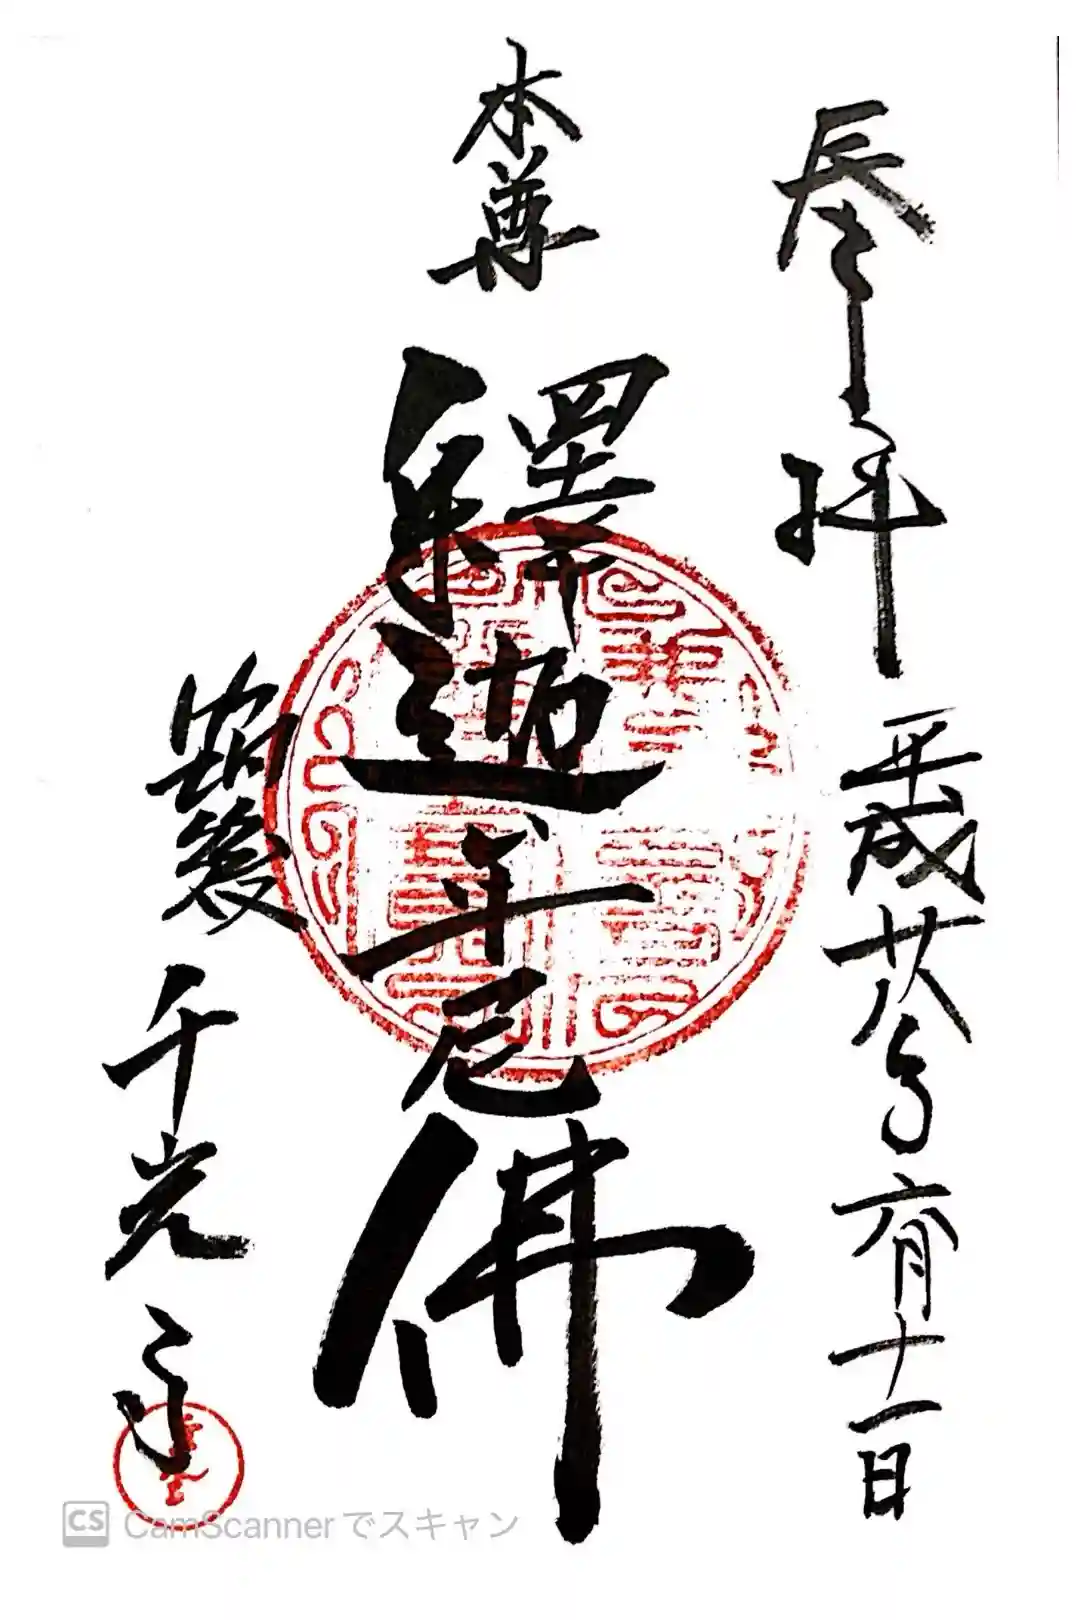 奉拝
平成廿八年六月十一日
本尊
釋迦牟尼佛
筑後
千光寺
CS CamScannerでスキャン